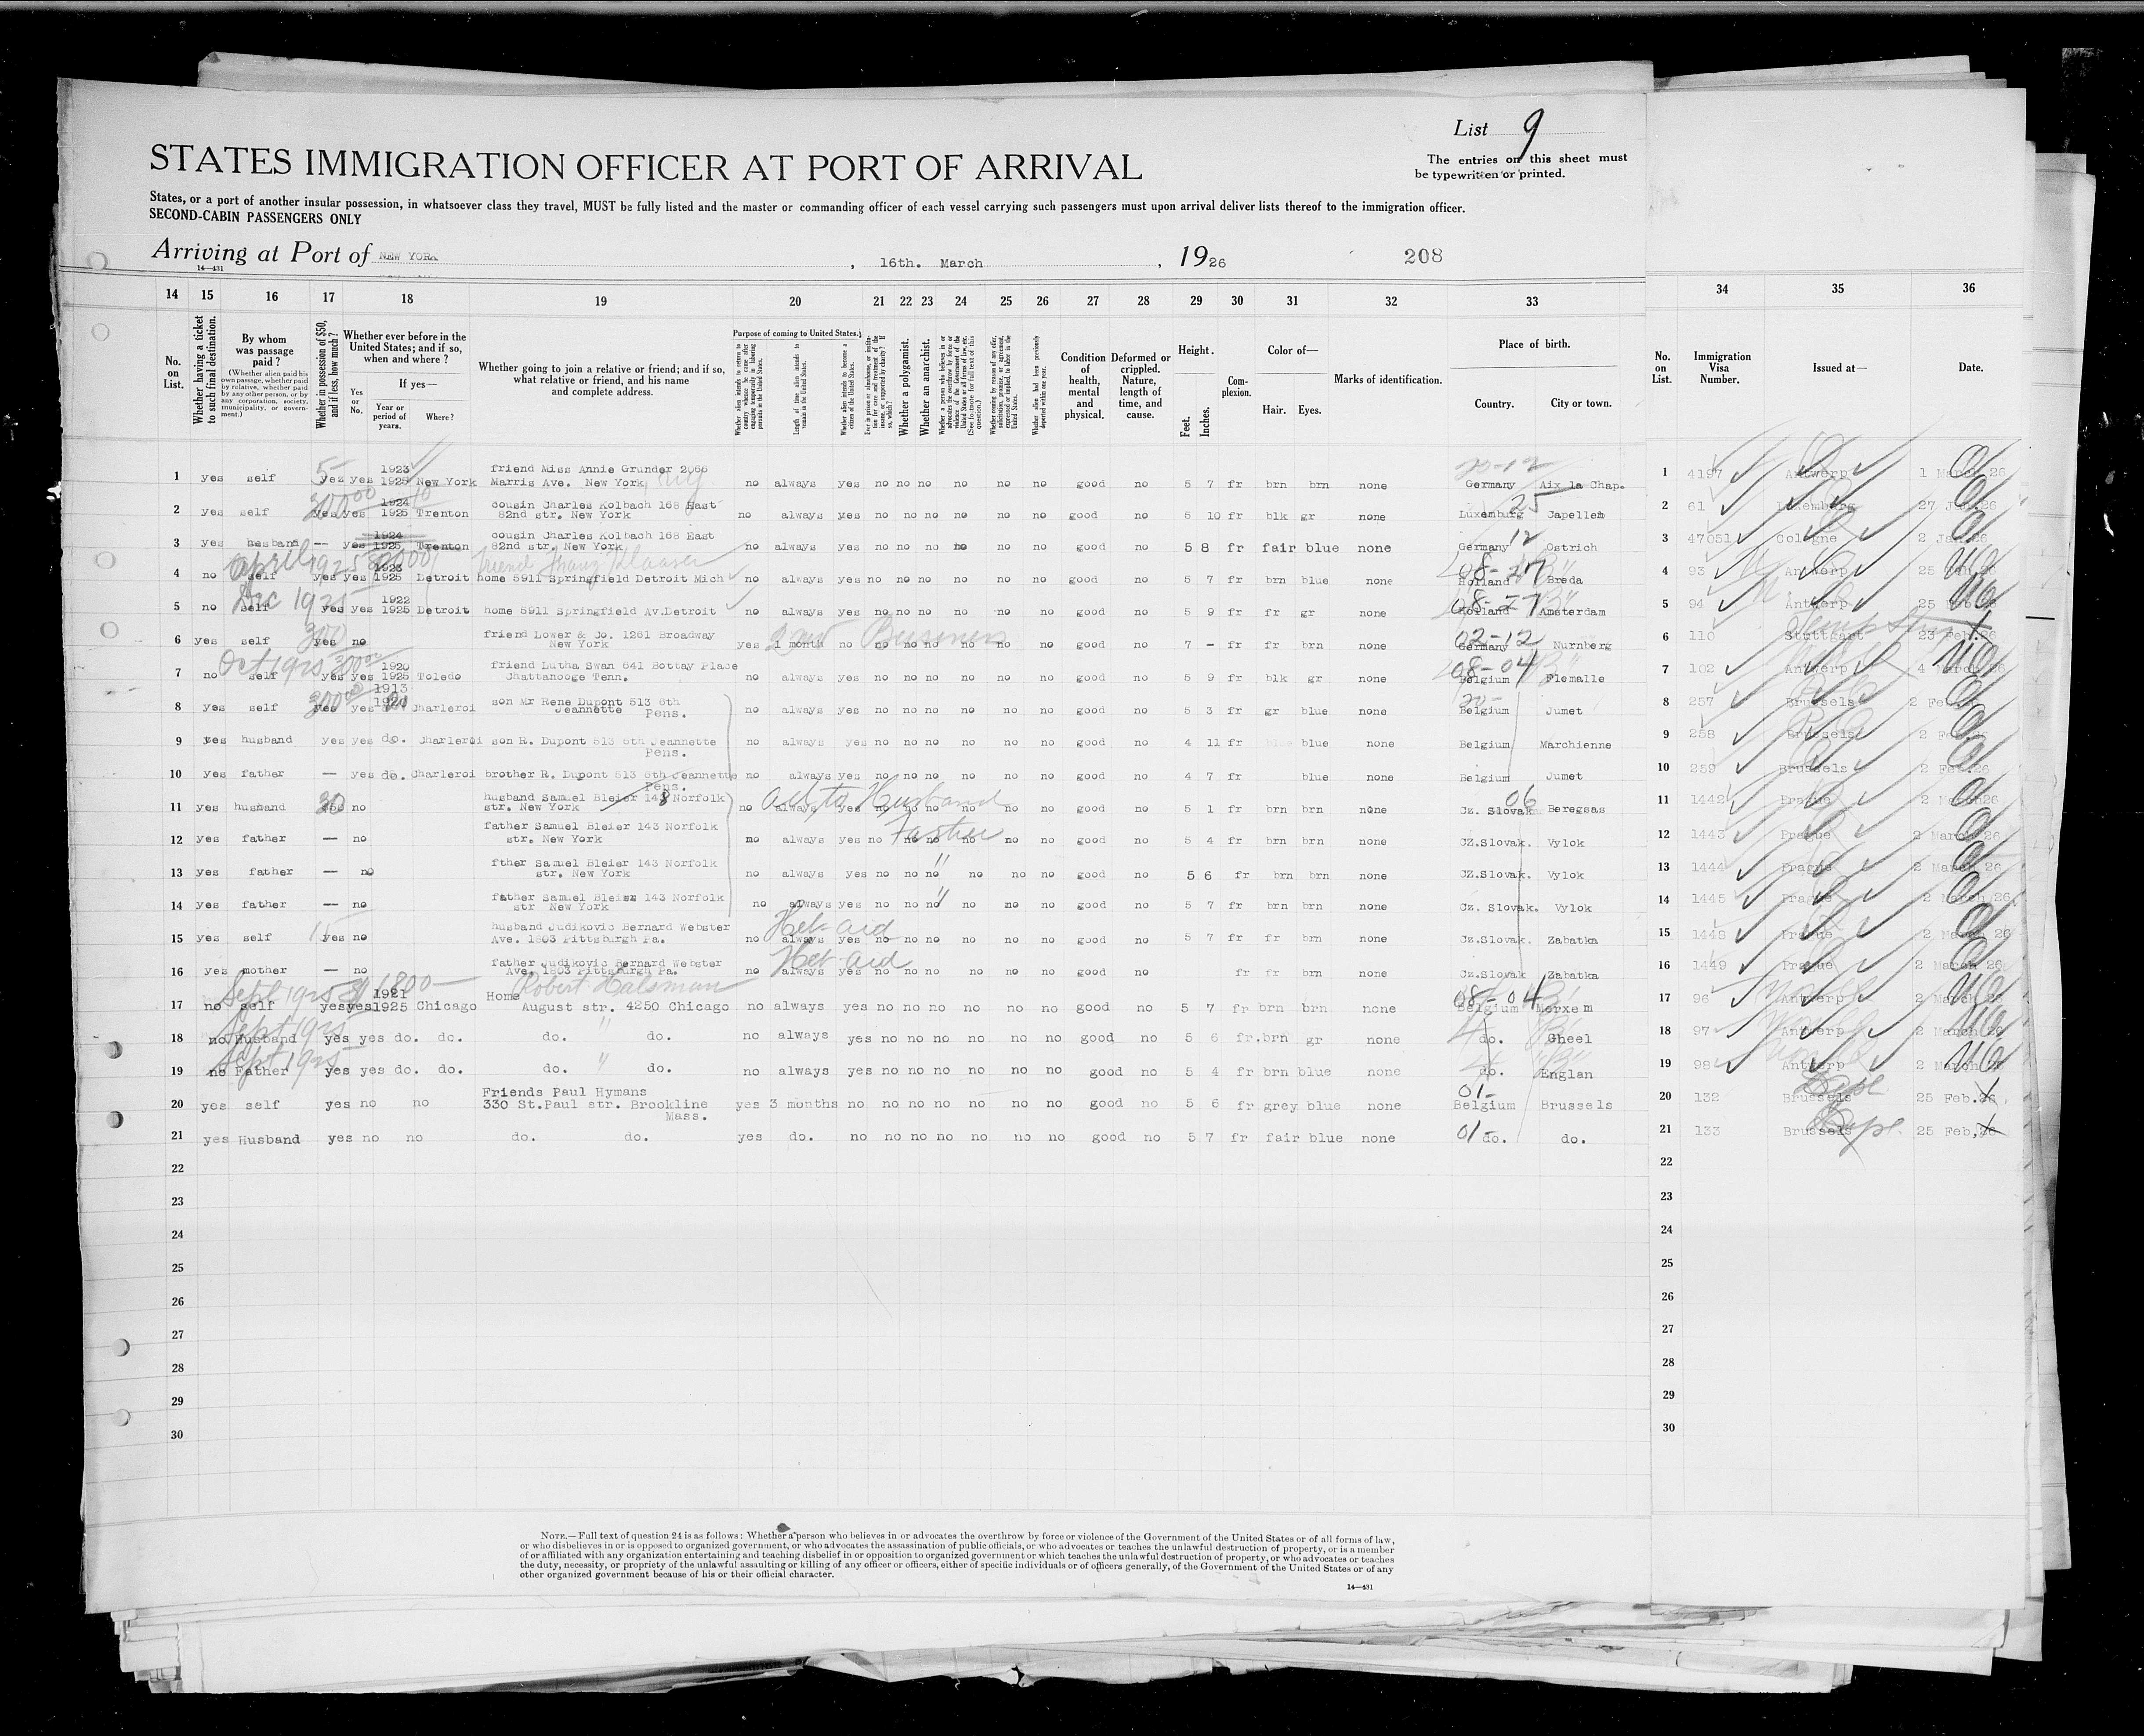 List 9
STATES IMMIGRATION OFFICER AT PORT OF ARRIVAL
The entries on this sheet must
be typewritten or printed.
States, or a port of another insular possession, in whatsoever class they travel, MUST be fully listed and the master or commanding officer of each vessel carrying such passengers must upon arrival deliver lists thereof to the immigration officer.
SECOND-CABIN PASSENGERS ONLY
Arriving at Port of NEW YORK, 16th. March, 1926 208
14—431
14 15 16 17 18 19 20 21 22 23 24 25 26 27 28 29 30 31 32 33 34 35 36
No. on List.
Whether having a ticket to such final destination.
By whom was passage paid?
(Whether alien paid his own passage, whether paid by relative, whether paid by any other person, or by any corporation, society, municipality, or government.)
Whether in possession of $50, and if less, how much?
Whether ever before in the United States; and if so, when and where?
Yes or No.
If yes—
Year or period of years.
Where?
Whether going to join a relative or friend; and if so, what relative or friend, and his name and complete address.
Purpose of coming to United States.
Whether alien intends to return to country whence he came after engaging temporarily in laboring pursuits in the United States.
Length of time alien intends to remain in the United States.
Whether alien intends to become a citizen of the United States.
Whether a polygamist.
Whether an anarchist.
Condition of health, mental and physical.
Deformed or crippled. Nature, length of time, and cause.
Height.
Feet. Inches.
Complexion.
Color of—
Hair. Eyes.
Marks of identification.
Place of birth.
Country. City or town.
No. on List.
Immigration Visa Number.
Issued at—
Date.
1 yes self 5 yes yes 1923 1925 New York friend Miss Annie Grunder 2066 Marris Ave. New York no always yes no no no no no no good no 5 7 fr brn brn none Germany Aix la Chap. 1 4197 Antwerp 1 March 26
2 yes self yes yes 1924 1925 Trenton cousin Charles Kolbach 168 East 82nd str. New York no always yes no no no no no no good no 5 10 fr blk gr none 25 Luxemburg Capellen 2 61 Luxemburg 27 Jan.26
3 yes husband — yes 1924 1925 Trenton cousin Charles Kolbach 168 East 82nd str. New York no always yes no no no no no no good no 5 8 fr fair blue none 12 Germany Ostrich 3 47051 Cologne 2 Jan.26
4 no April 1925 self yes yes 1923 1925 Detroit friend Franz Klaasen home 5911 Springfield Detroit Mich no always yes no no no no no no good no 5 7 fr brn blue none 08-27 Holland Breda 4 93 Antwerp 25
5 no Dec 1925 self yes yes 1922 1925 Detroit home 5911 Springfield Av.Detroit no always yes no no no no no no good no 5 9 fr fr gr none 08-27 Holland Amsterdam 5 94 Antwerp 25
6 yes self 300 yes no friend Lower & Co. 1261 Broadway New York yes 1 month no Business no no no no no no good no 7 - fr fr brn none 02-12 Germany Nurnberg 6 110 Stuttgart 23 Feb.26
7 no Oct 1925 self 300 yes yes 1920 1925 Toledo friend Lutha Swan 641 Bottay Place Chattanooge Tenn. no always yes no no no no no no good no 5 9 fr blk gr none 08-04 Belgium Flemalle 7 102 Antwerp 4 March 26
8 yes self 300 yes yes 1913 1920 Charleroi son Mr Rene Dupont 513 6th Jeannette Pens. no always yes no no no no no no good no 5 3 fr gr blue none Belgium Jumet 8 257 Brussels 2 Feb
9 yes husband yes yes do. Charleroi son R. Dupont 513 6th Jeannette Pens. no always yes no no no no no no good no 4 11 fr blue none Belgium Marchienne 9 258 Brussels 2
10 yes father — yes do. Charleroi brother R. Dupont 513 6th Jeannette Pens. no always yes no no no no no no good no 4 7 fr blue none Belgium Jumet 10 259 Brussels 2 Feb.26
11 yes husband 30 no husband Samuel Bleier 148 Norfolk str. New York no always yes Husband no no no no no no good no 5 1 fr brn brn none 06 Cz. Slovak Beregsas 11 1442 Prague 2 March26
12 yes father — no father Samuel Bleier 143 Norfolk str. New York no always yes Father no no no no no no good no 5 4 fr brn brn none CZ.Slovak. Vylok 12 1443 Prague 2 March 26
13 yes father — no fther Samuel Bleier 143 Norfolk str. New York no always yes " no no no no no no good no 5 6 fr brn brn none CZ.Slovak. Vylok 13 1444 Prague 2 March 26
14 yes father — no father Samuel Bleier 143 Norfolk str New York no always yes " no no no no no no good no 5 7 fr brn brn none Cz. Slovak. Vylok 14 1445 Prague 2 March 26
15 yes self 15 yes no husband Judikovic Bernard Webster Ave. 1803 Pittsburgh Pa. no Heb-aid always yes no no no no no no good no 5 7 fr fr brn none Cz.Slovak. Zabatka 15 1448 Prague 2 March 26
16 yes mother — no father Judikovic Bernard Webster Ave. 1803 Pittsburgh Pa. no Heb-aid always yes no no no no no no good no fr fr brn none Cz.Slovak Zabatka 16 1449 Prague 2 March 26
17 no Sept 1925 self yes yes 1921 1925 Chicago Home Robert Halsman August str. 4250 Chicago no always yes no no no no no no good no 5 7 fr brn brn none 08-04 Belgium Merxem 17 96 Antwerp 2 March 26
18 no Sept 1925 Husband yes yes do. do. do. " do. no always yes no no no no no no good no 5 6 fr. brn gr none do. Gheel 18 97 Antwerp 2 March 26
19 no Sept 1925 Father yes yes do. do. do. " do. no always yes no no no no no no good no 5 4 fr brn blue none do. Englan 19 98 Antwerp 2 March 26
20 yes self yes no no Friends Paul Hymans 330 St.Paul str. Brookline Mass. yes 3 months no no no no no no no good no 5 6 fr grey blue none 01- Belgium Brussels 20 132 Brussels 25 Feb.26
21 yes Husband yes no no do. do. yes do. no no no no no no no good no 5 7 fr fair blue none 01 do. do. 21 133 Brussels 25 Feb,26
22 22
23 23
24 24
25 25
26 26
27 27
28 28
29 29
30 30
NOTE.—Full text of question 24 is as follows: Whether a person who believes in or advocates the overthrow by force or violence of the Government of the United States or of all forms of law,
or who disbelieves in or is opposed to organized government, or who advocates the assassination of public officials, or who advocates or teaches the unlawful destruction of property, or is a member
of or affiliated with any organization entertaining and teaching disbelief in or opposition to organized government or which teaches the unlawful destruction of property, or who advocates or teaches
the duty, necessity, or propriety of the unlawful assaulting or killing of any officer or officers, either of specific individuals or of officers generally, of the Government of the United States or of any
other organized government because of his or their official character.
14—431